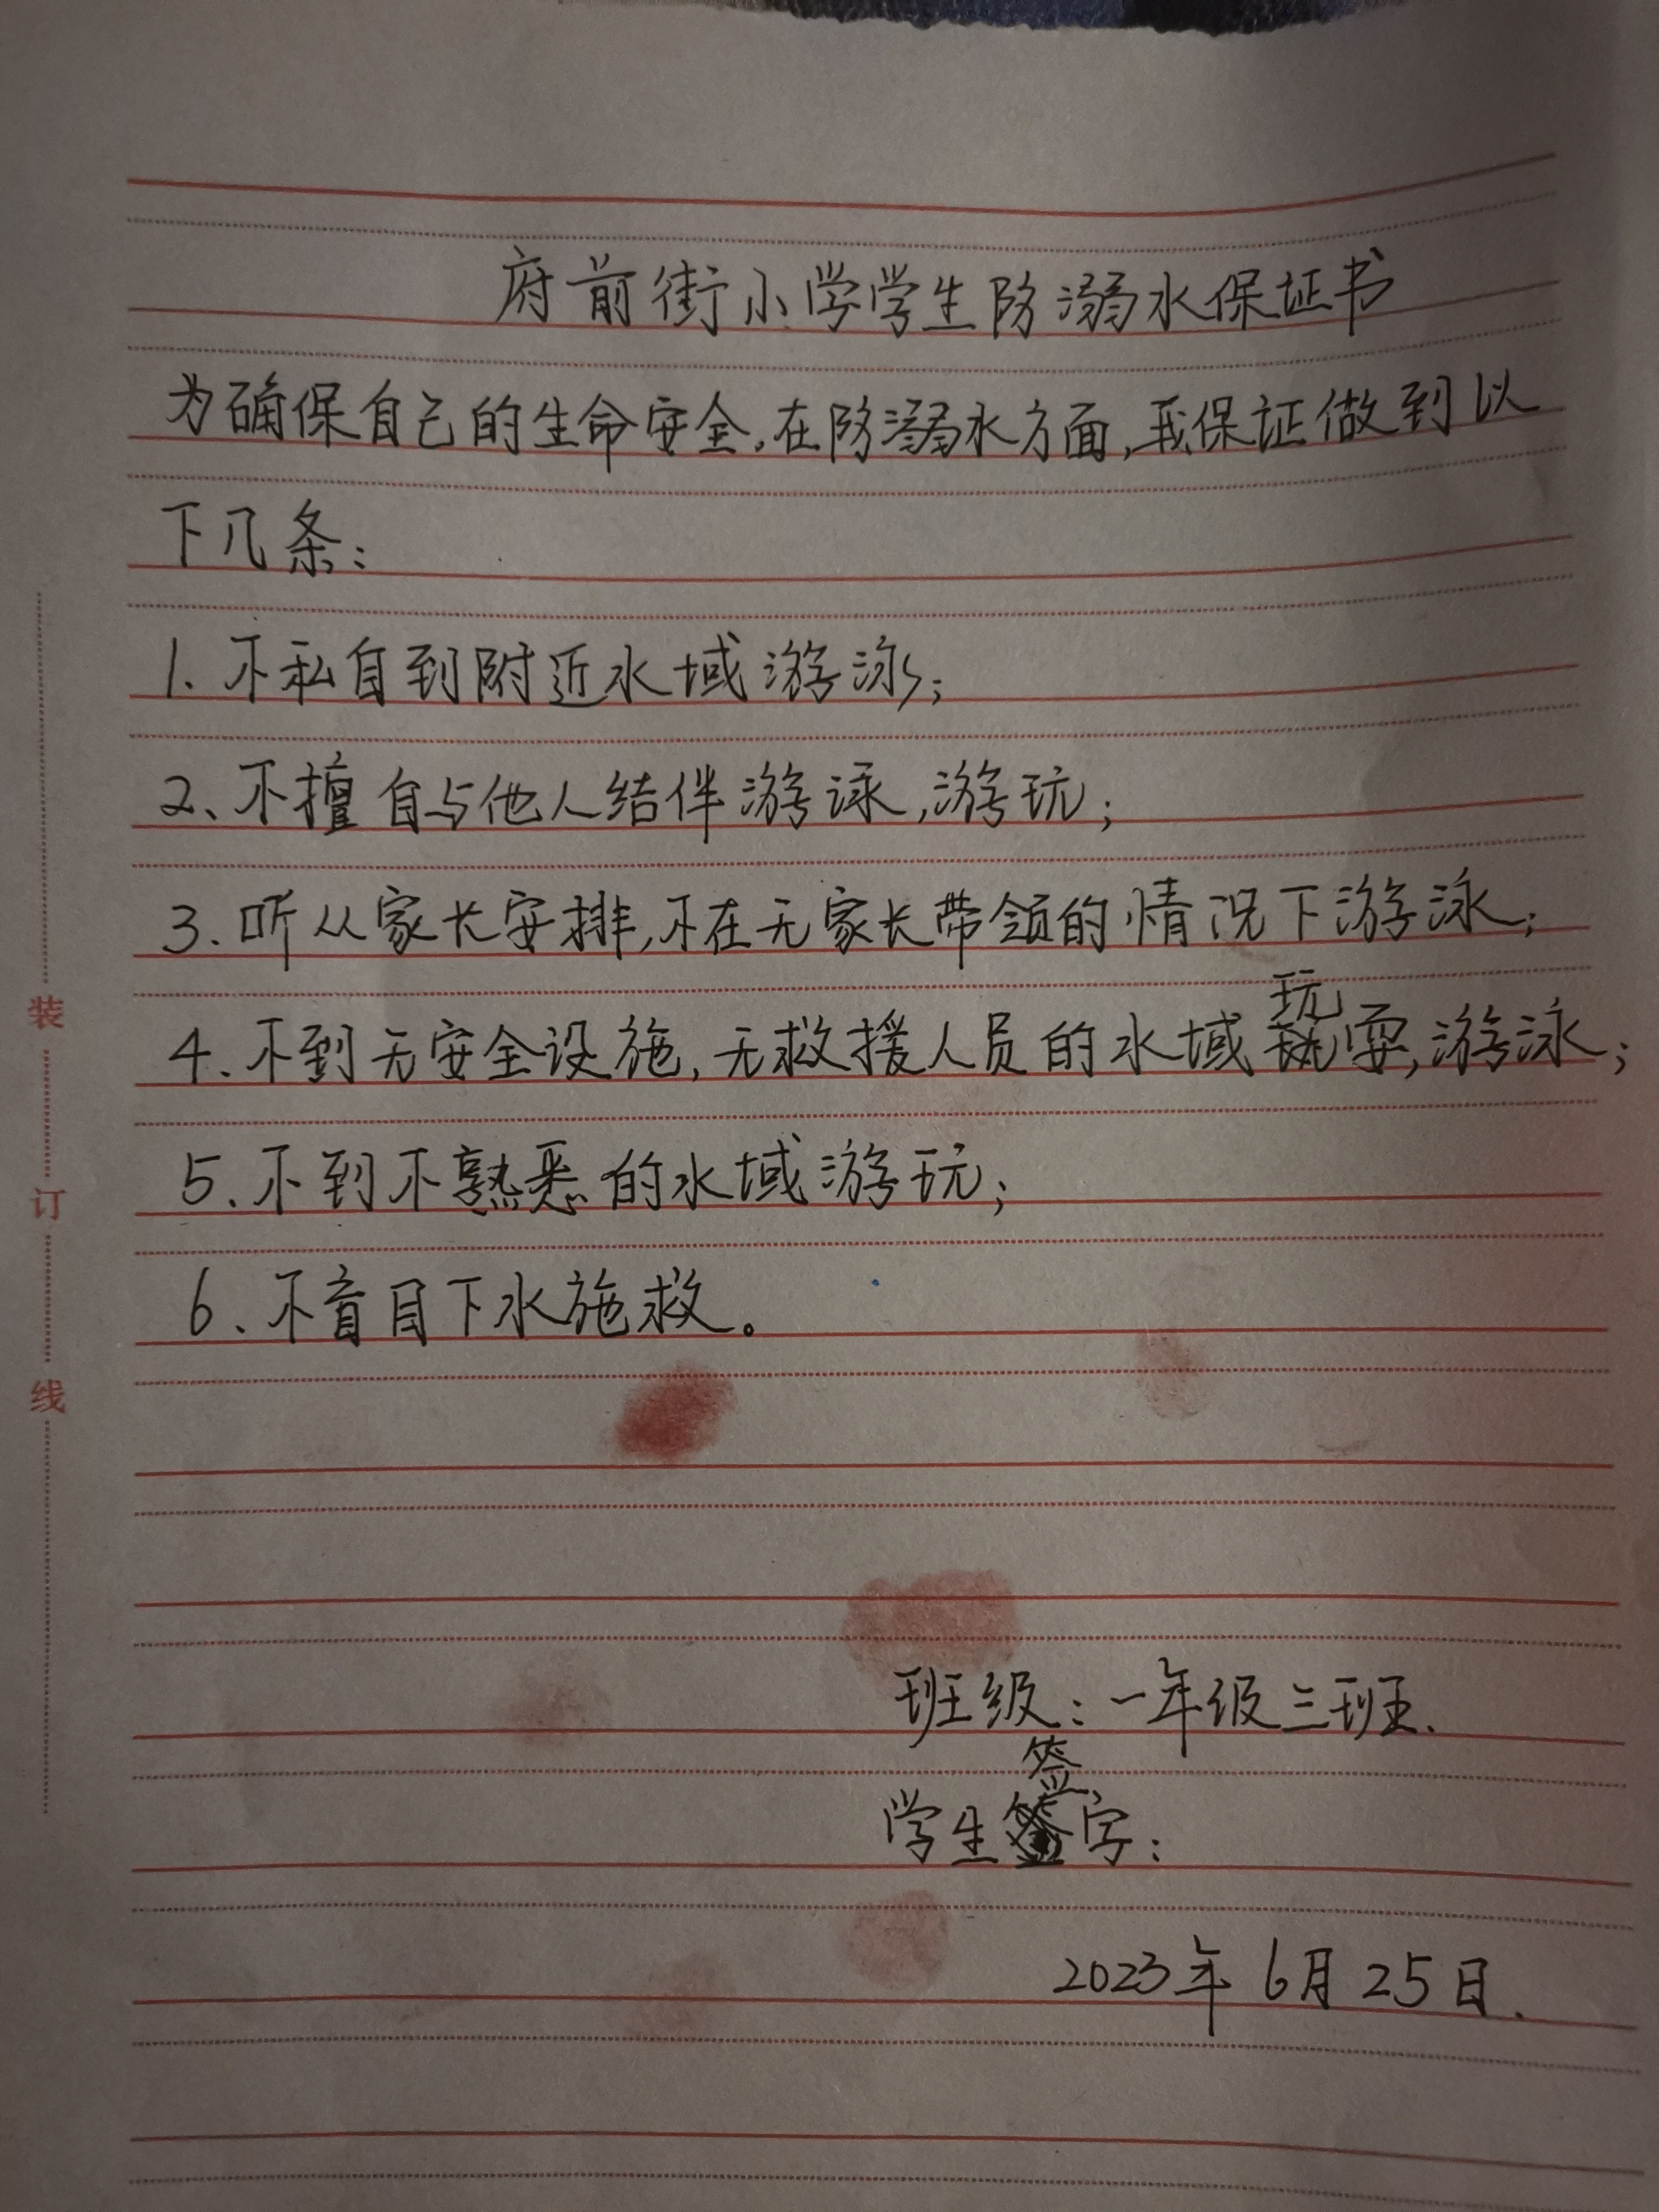 府前街小学学生防溺水保证书
为确保自己的生命安全,在防溺水方面,我保证做到以
下几条:
1. 不私自到附近水域游泳;
2、不擅自与他人结伴游泳,游玩;
3. 听从家长安排,不在无家长带领的情况下游泳;
4. 不到无安全设施,无救援人员的水域玩耍,游泳;
5、不到不熟悉的水域游玩;
6、不盲目下水施救。
班级:一年级三班.
学生签字:
2023年6月25日.
装
订
线